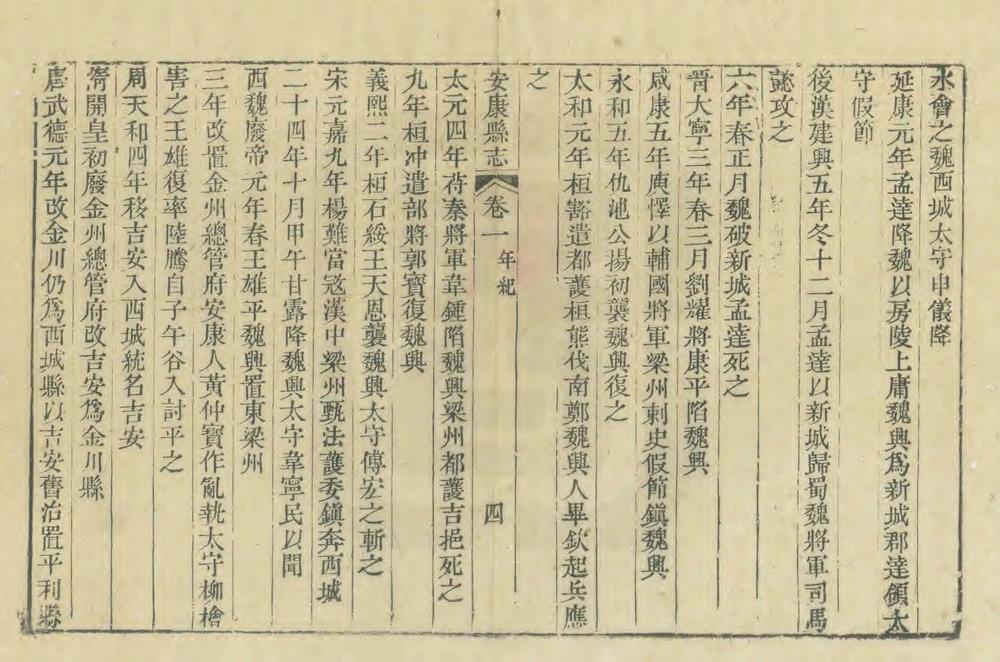 水會之魏西城太守申儀降
延康元年孟達降魏以房陵上庸魏興爲新城郡達領太
守假節
後漢建興五年冬十二月孟達以新城歸蜀魏將軍司馬
懿攻之
六年春正月魏破新城孟達死之
晉大寧三年春三月劉耀將康平陷魏興
咸康五年庾懌以輔國將軍梁州刺史假節鎮魏興
永和五年仇池公揚初襲魏興復之
太和元年桓豁遣都護桓熊伐南鄭魏興人畢欽起兵應
之
安康縣志 卷一 年紀 四
太元四年苻秦將軍韋鍾陷魏興梁州都護吉挹死之
九年桓冲遣部將郭寶復魏興
義熙二年桓石綏王天恩襲魏興太守傅宏之斬之
宋元嘉九年楊難當寇漢中梁州甄法護委鎮奔西城
二十四年十月甲午甘露降魏興太守韋寧民以聞
西魏廢帝元年春王雄平魏興置東梁州
三年改置金州總管府安康人黃仲寶作亂執太守柳檜
害之王雄復率陸騰自子午谷入討平之
周天和四年移吉安入西城統名吉安
隋開皇初廢金州總管府改吉安爲金川縣
唐武德元年改金川仍爲西城縣以吉安舊治置平利縣